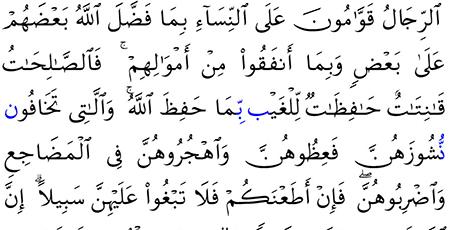 ٱلرِّجَالُ قَوَّٰمُونَ عَلَى ٱلنِّسَآءِ بِمَا فَضَّلَ ٱللَّهُ بَعْضَهُمْ
عَلَىٰ بَعْضٍ وَبِمَآ أَنفَقُوا۟ مِنْ أَمْوَٰلِهِمْ ۚ فَٱلصَّٰلِحَٰتُ
قَٰنِتَٰتٌ حَٰفِظَٰتٌ لِّلْغَيْبِ بِمَا حَفِظَ ٱللَّهُ ۚ وَٱلَّٰتِى تَخَافُونَ
نُشُوزَهُنَّ فَعِظُوهُنَّ وَٱهْجُرُوهُنَّ فِى ٱلْمَضَاجِعِ
وَٱضْرِبُوهُنَّ ۖ فَإِنْ أَطَعْنَكُمْ فَلَا تَبْغُوا۟ عَلَيْهِنَّ سَبِيلًا ۗ إِنَّ